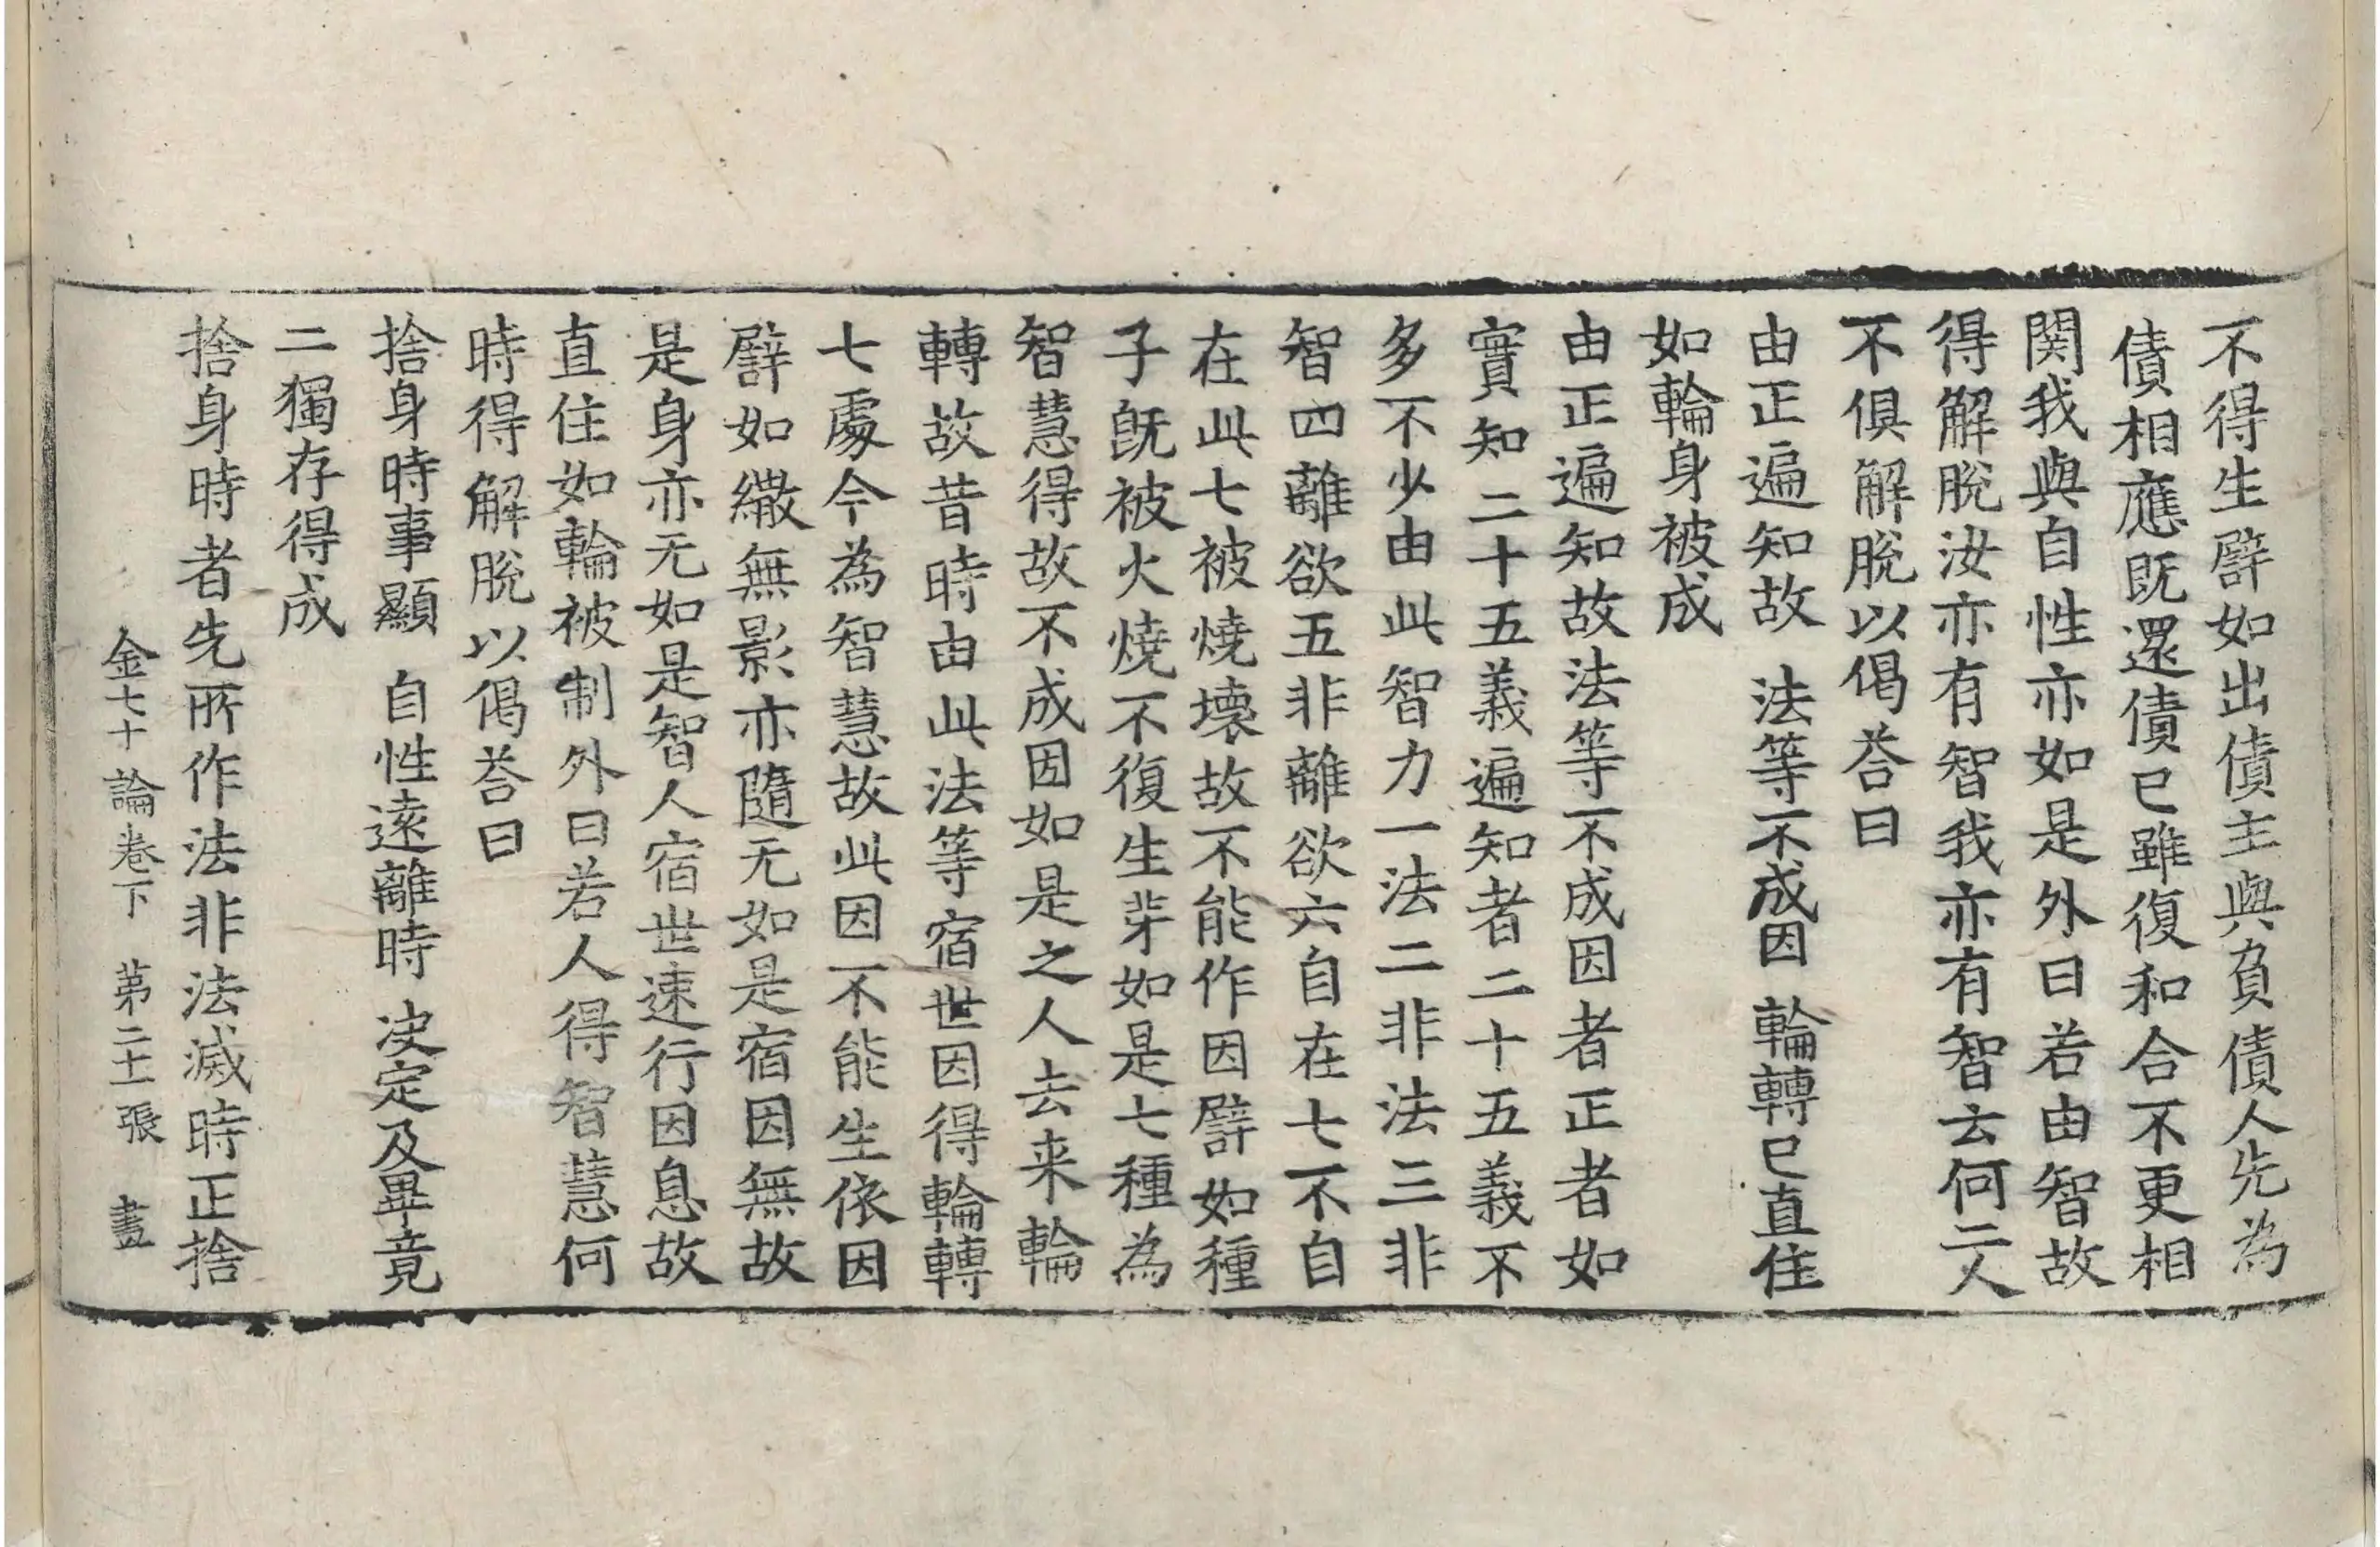 不得生譬如出債主與負債人先為
債相應既還債已雖復和合不更相
関我與自性亦如是外曰若由智故
得解脫汝亦有智我亦有智云何二人
不俱解脫以偈荅曰
由正遍知故 法等不成因 輪轉已直住
如輪身被成
由正遍知故法等不成因者正者如
實知二十五義遍知者二十五義不
多不少由此智力一法二非法三非
智四離欲五非離欲六自在七不自
在此七被燒壞故不能作因譬如種
子旣被火燒不復生芽如是七種為
智慧得故不成因如是之人去来輪
轉故昔時由此法等宿世因得輪轉
七處今為智慧故此因不能生依因
譬如繖無影亦隨无如是宿因無故
是身亦无如是智人宿世速行因息故
直住如輪被制外曰若人得智慧何
時得解脫以偈荅曰
捨身時事顯 自性遠離時 决定及畢竟
二獨存得成
捨身時者先所作法非法滅時正捨
金七十論卷下 苐二十一張 畫